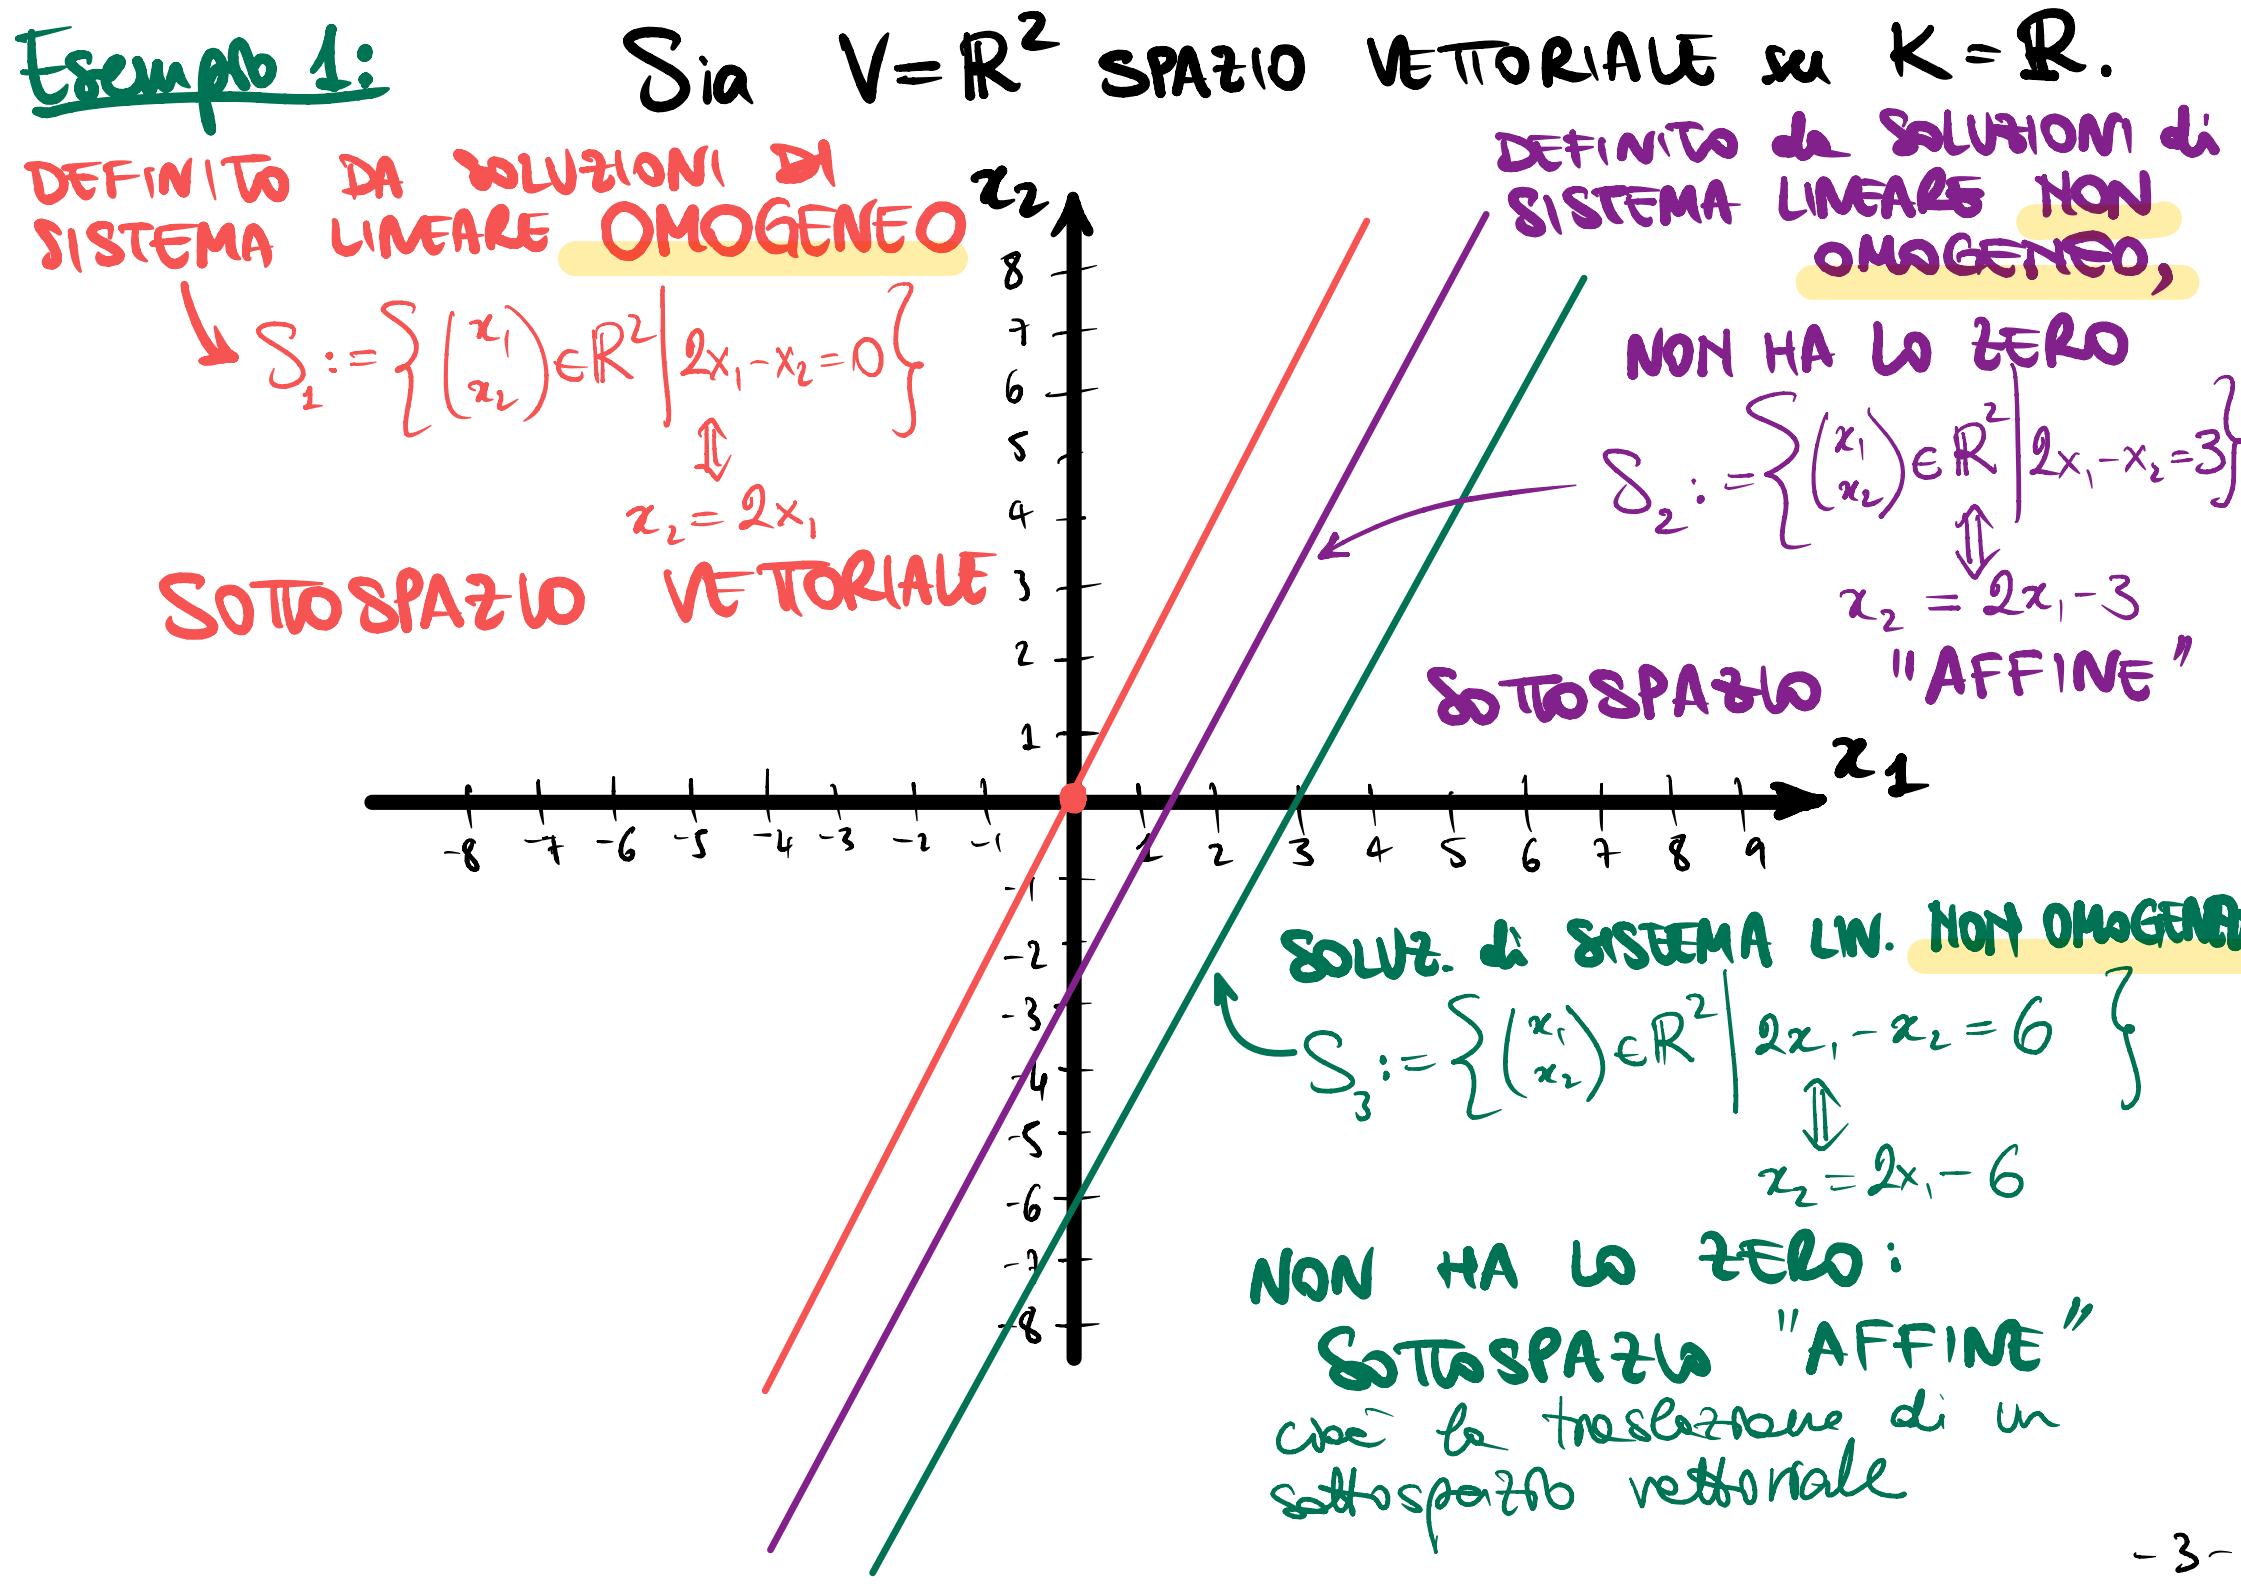 Esempio 1: Sia V = ℝ² SPAZIO VETTORIALE su K = ℝ.
DEFINITO DA SOLUZIONI DI
SISTEMA LINEARE OMOGENEO
S₁ := { (x₁ x₂) ∈ ℝ² | 2x₁ - x₂ = 0 }
⇕
x₂ = 2x₁
SOTTOSPAZIO VETTORIALE
DEFINITO da SOLUZIONI di
SISTEMA LINEARE NON
OMOGENEO,
NON HA LO ZERO
S₂ := { (x₁ x₂) ∈ ℝ² | 2x₁ - x₂ = 3 }
⇕
x₂ = 2x₁ - 3
SOTTOSPAZIO "AFFINE"
x₂
8
7
6
5
4
3
2
1
x₁
-8 -7 -6 -5 -4 -3 -2 -1 1 2 3 4 5 6 7 8 9
-1
-2
-3
-4
-5
-6
-7
-8
SOLUZ. di SISTEMA LIN. NON OMOGENEO
S₃ := { (x₁ x₂) ∈ ℝ² | 2x₁ - x₂ = 6 }
⇕
x₂ = 2x₁ - 6
NON HA LO ZERO:
SOTTOSPAZIO "AFFINE"
cioè la traslazione di un
sottospazio vettoriale
-3-